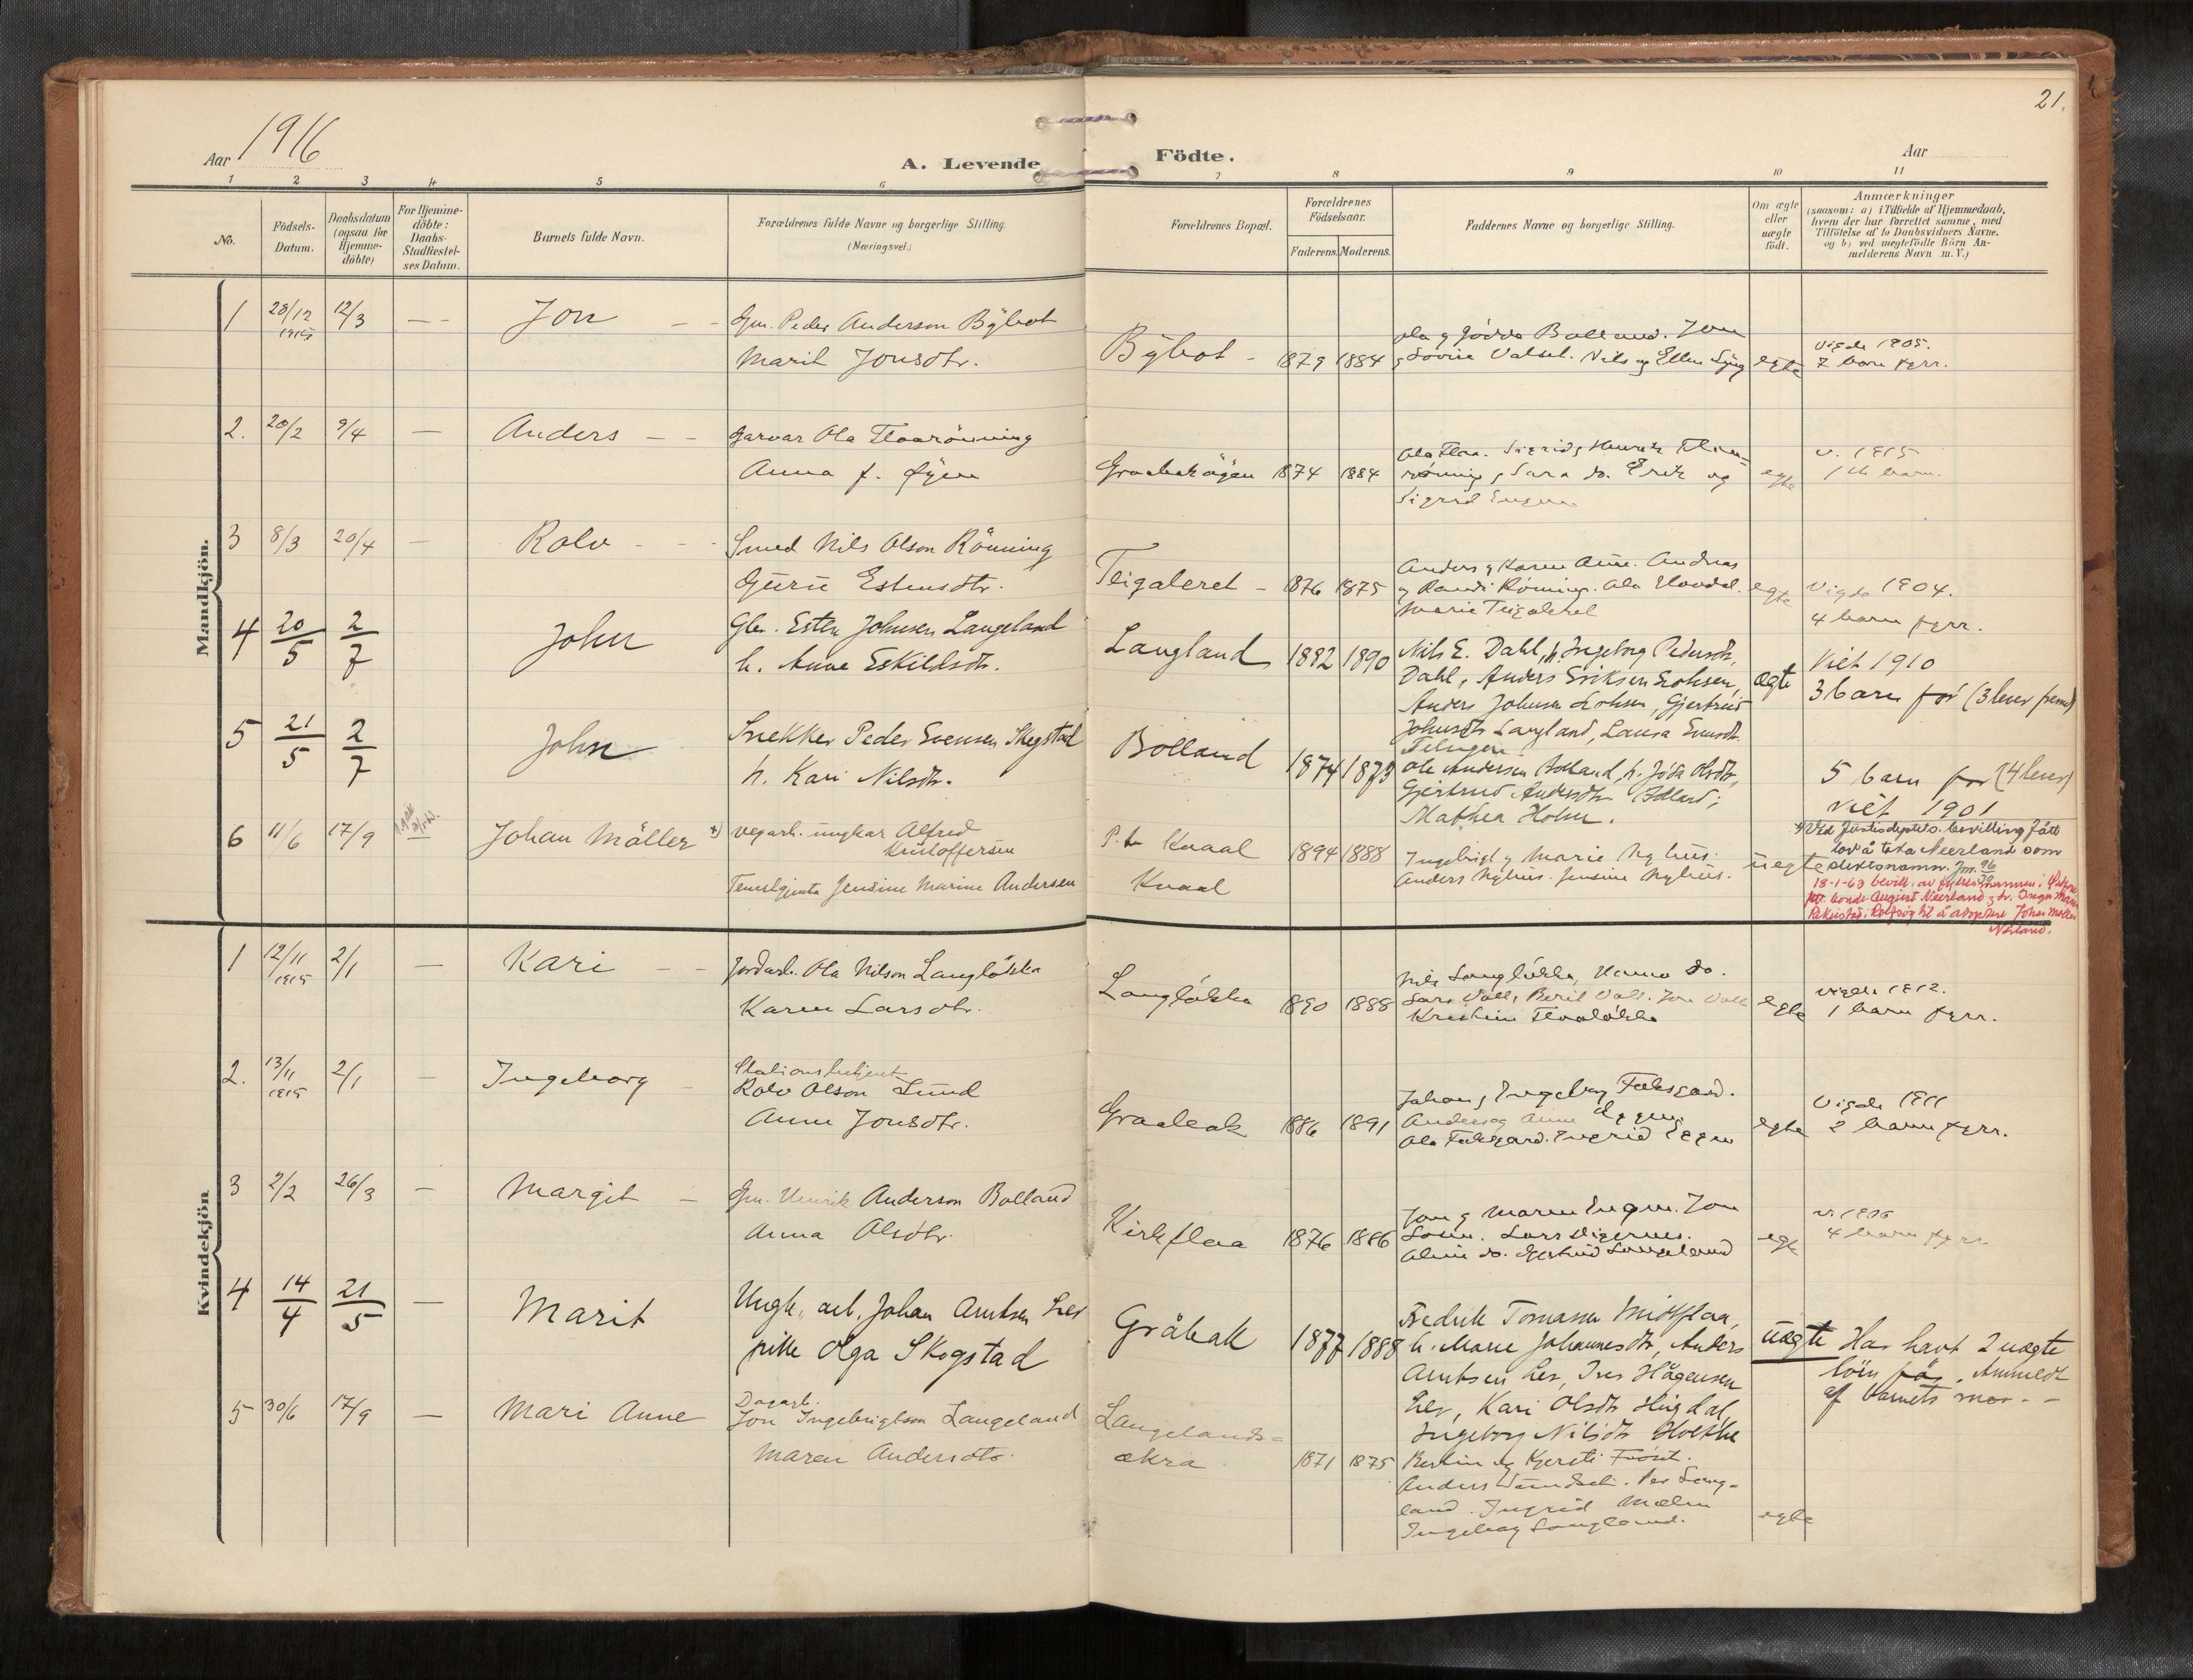 21.
Aar 1916
A. Levende Födte.
Aar
1 2 3 4 5 6 7 8 9 10 11
No.
Födsels-Datum.
Daabsdatum (ogsaa for Hjemme-döbte)
For Hjemme-döbte: Daabs-Stadfæstel-ses Datum.
Barnets fulde Navn.
Forældrenes fulde Navne og borgerlige Stilling.
(Næringsvei.)
Forældrenes Bopæl.
Forældrenes Födselsaar.
Faderens. Moderens.
Faddernes Navne og borgerlige Stilling.
Om ægte eller uægte födt.
Anmærkninger
(saasom: a) i Tilfælde af Hjemmedaab,
hvem der har forrettet samme, med
Tilföielse af to Daabsvidners Navne,
og b) ved uægtefödte Börn An-
melderens Navn m. V.)
Mandkjön.
1 28/12 1915 12/3 — Jon — Gm. Peder Anderson Býbot
Marit Jonsdtr.
Býbot - 1879 1884
Ola g Jödda Bolland. Jon
g Lovise Valset. Nils og Ellen
egte
Vigde 1905.
7 born fyrr.
2. 20/2 9/4 — Anders — Garvar Ola Floarönning
Anna f. Øyen
1874 1884
Ola Floa. Sigrid g Henrik
rönning, Sara do. Erik og
Sigrid
egte
v. 1915
1ste barn.
3 8/3 20/4 — Rolv - Smed Nils Olson Rönning
Guru Estensdtr.
Teigaleret - 1876 1875
Anders g Karen Aune. Andreas
g Randi Röning. Ola
Marie
egte
Vigde 1904.
4 barn fyrr.
4 20/5 2/7 John
Gbr. Esten Johnsen Langeland
h. Anne Eskildsdtr.
Langland 1882 1890
Nils E. Dahl, h. Ingeborg Pedersdtr.
Dahl, Anders Eriksen
Anders Johnsen Losen, Gjertrud
Johnsdtr Langland, Laura
ægte
Viet 1910
3 barn før (3 lever fremd)
5 21/5 2/7 John
Snekker Peder Svensen Skogstad
h. Kari Nilsdtr.
Bolland 1874 1873
Ole Andersen Bolland, h. Jöda Olsdtr,
Gjertrud Andersdtr Bolland;
Mathea Holm.
5 barn før (4 lever)
viet 1901
6 11/6 17/9 Johan Möller +) vegarb. ungkar Alfred
Kristoffersen
Teneskjenta Jensine Marine Andersen
P.t. Knaal
Knaal
1894 1888
Ingebrigt g Marie Nyhus.
Anders Nyhus. Jensine Nyhus.
uegte
+) Ved Justisdeptets. bevilling fått
lov å ta Neerland som
slektsnamn.
18-1-63 bevill. av
bonde August Neerland g
til å adoptere Johan Möller
Nerland.
Kvindekjön
1 12/11 1915 2/1 — Kari — Jordarb. Ola Nilson Langlökka
Karen Larsdtr.
Langlökka 1890 1888
Nils Langlökka, Hanna do.
Lars Voll, Beril Voll. Jon Voll
Kristine Floalökka
egte
vigde 1912.
1 barn fyrr.
2. 13/11 1915 2/1 — Ingeborg -
Stationsbetjent
Rolv Olson Lund
Anne Jonsdtr.
Graabak 1886 1891
Johan g Ingeborg
Anders og Anne Eggen.
Ola Ingrid Eggen
egte
Vigde 1911
2 barn fyrr.
3 2/2 26/3 — Margit — Gm. Henrik Anderson Bolland
Anna Olsdtr.
Kirkflaa 1876 1886
Jon g Maren Engen. Jon
Losen. Lars
do. Gjertrud Langeland
egte
4 barn fyrr
4 14/4 21/5 — Marit
Ungk. arb. Johan Arntsen Ler
pike Olga Skogstad
Gråbak 1877 1888
Fredrik Tomassen Midtflaa,
h. Marie Johannesdtr, Anders
Arntsen Ler, Ives Hågensen
Ler, Kari Olsdtr Hugdal,
Ingeborg Nilsdtr
uægte
Har havt 2 uægte
börn før. Anmeldt
af barnets mor. -
5 30/6 17/9 — Mari Anne
Dagarb.
Jon Ingebrigtson Langeland
Maren Andersdtr.
Langelands-
ækra. 1871 1875
og Kjersti
Anders Per Lang-
land. Ingrid Mælen
Ingeborg Langland.
egte